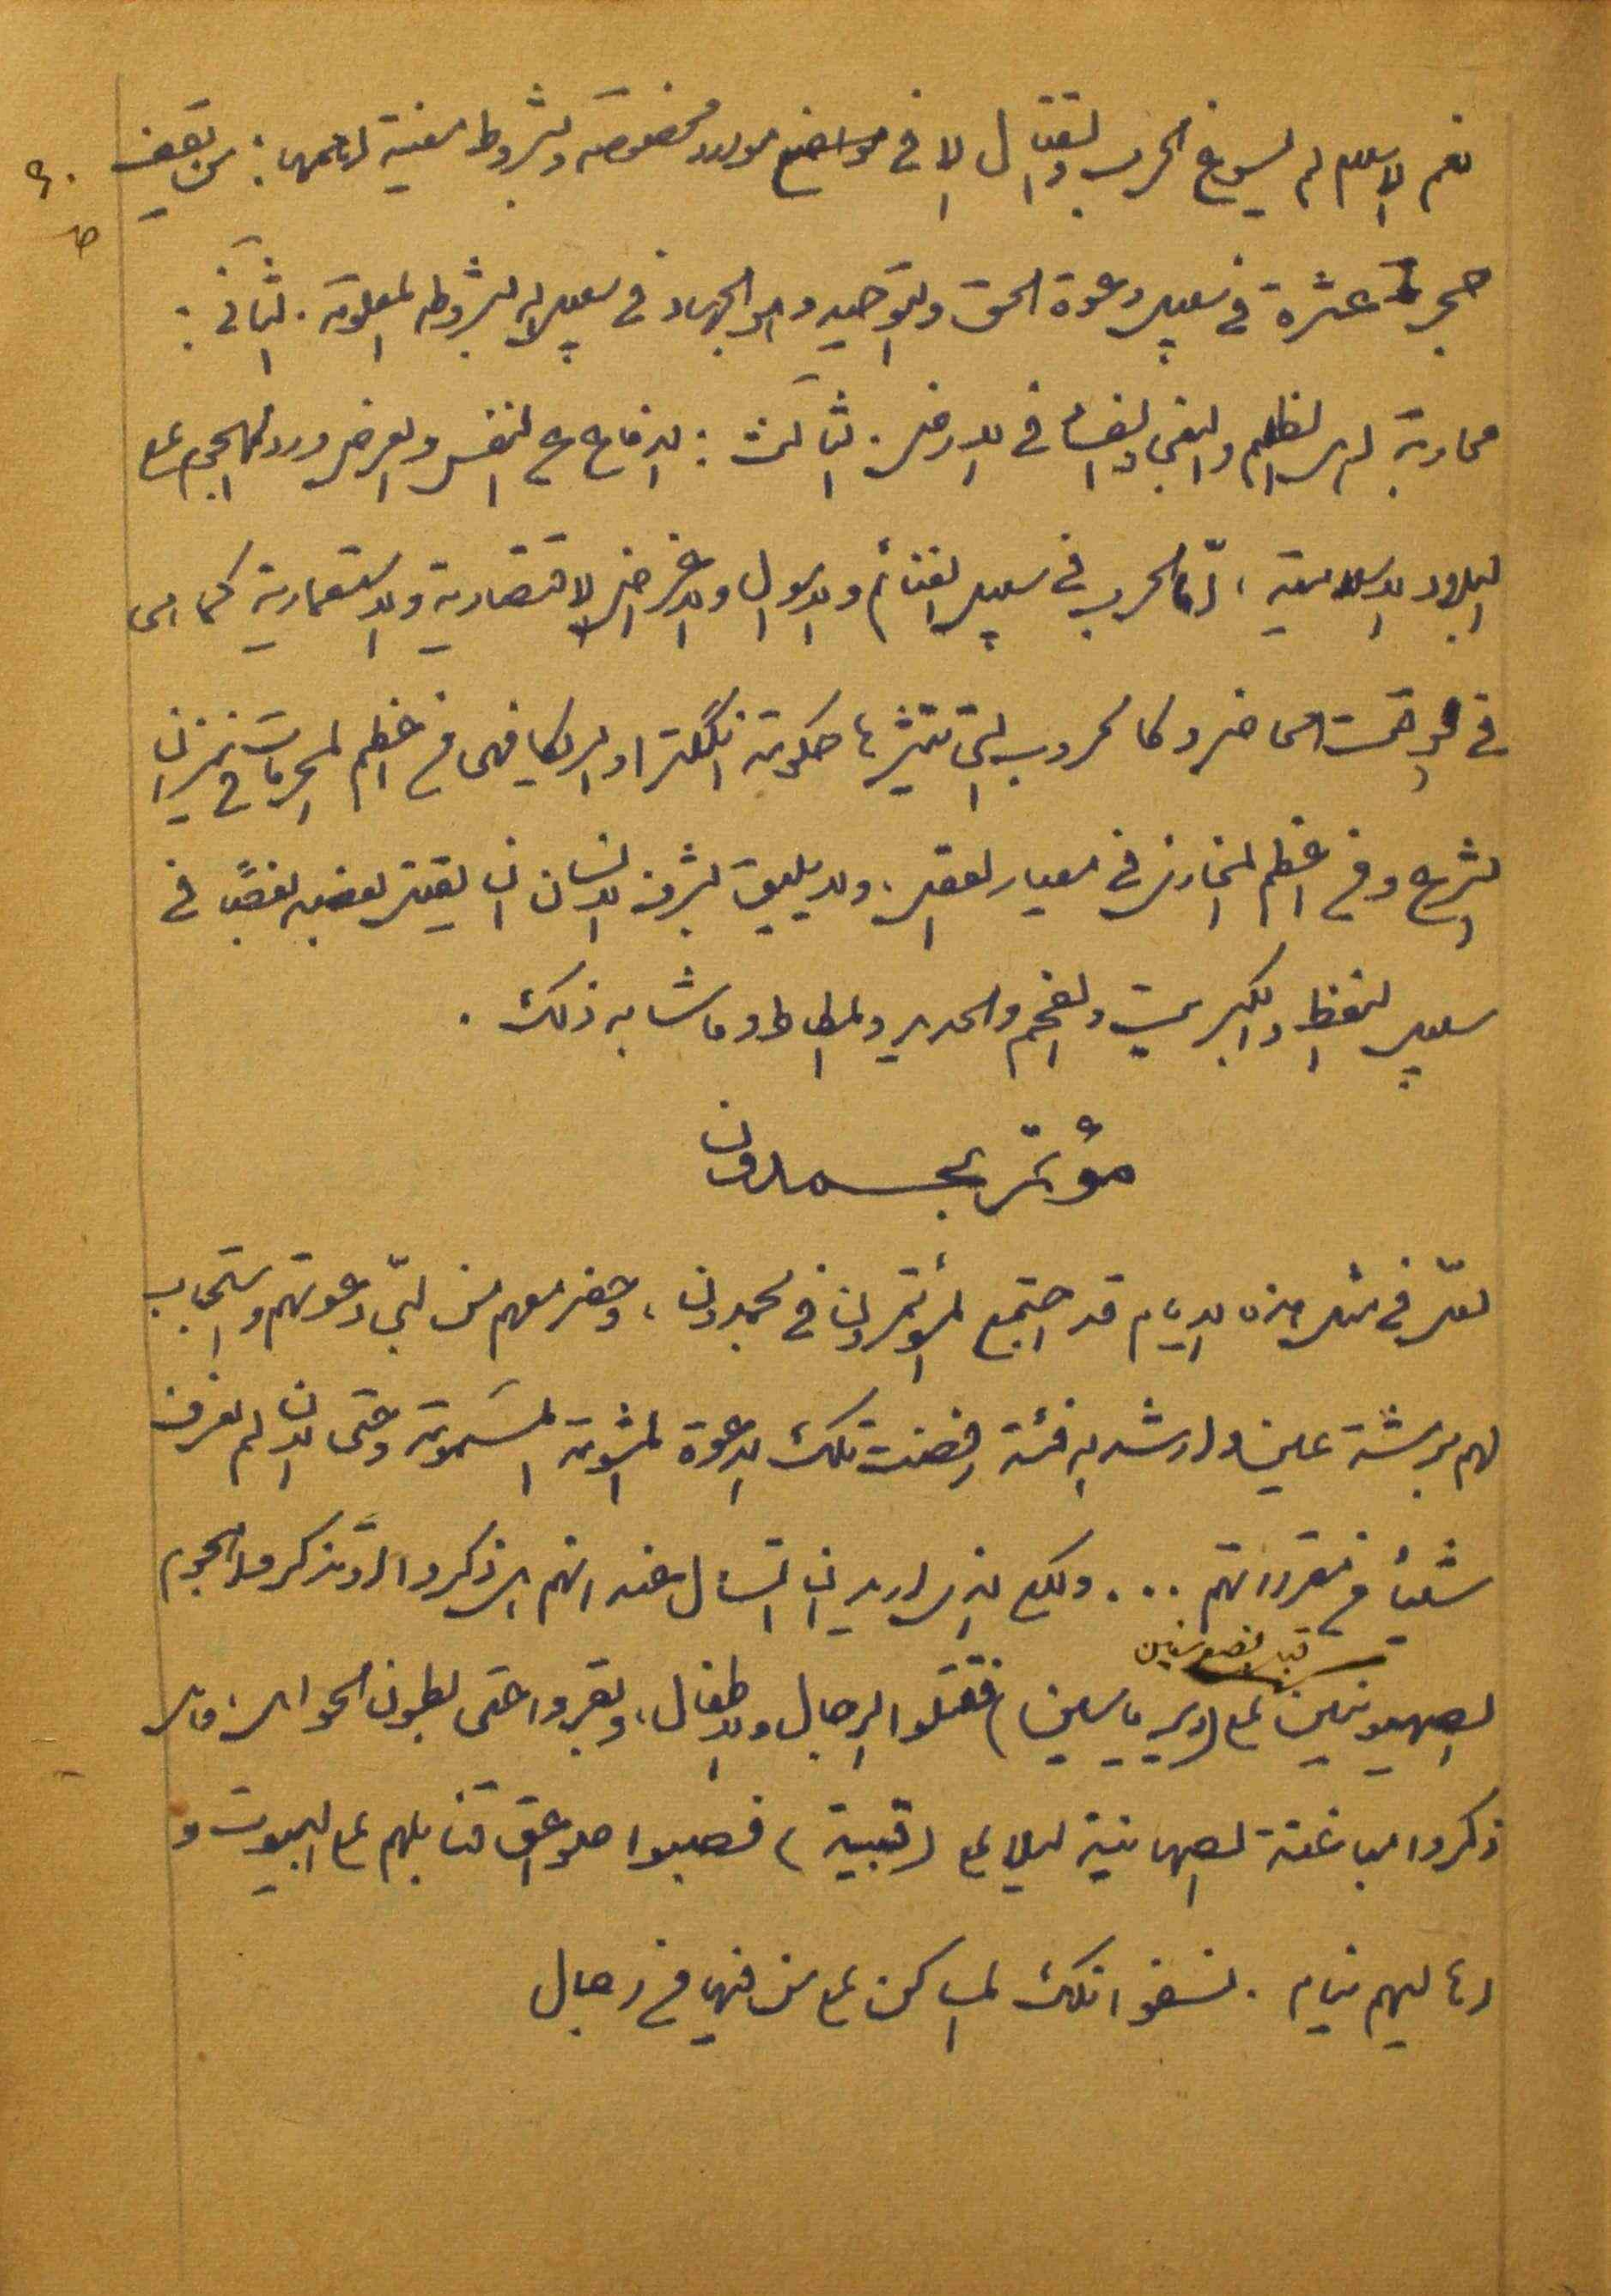 نعم الاسلام لم يسوغ الحرب والقتال الا في مواضع موارد مخصوصة وبشروط معينة اهمها : من يقف
حجر عثرة في سبيل دعوة الحق والتوحيد وهو الجهاد في سبيل الله بشروطه المعلومة . الثاني :
محاربة اهل الظلم والبغي والفساد في الارض . الثالث : الدفاع عن النفس والعرض ورد الهجوم على
البلاد الاسلامية ، امّا الحرب في سبيل الغنائم والاموال والاغراض الاقتصادية والاستعمارية كما هي
في الوقت الحاضر وكالحروب التي تثيرها حكومة انگلترا وامريكا فهي من اعظم المحرمات في ميزان
الشرع ومن اعظم المخازي في معيار العقل . ولا يليق بشرف الانسان ان يقتل بعضه بعضًا في
سبيل النفط والكبريت والفحم والحديد والمطاط وما شابه ذلك .
مؤتمر بحمدون
لعلّ في مثل هذه الايام قد اجتمع المؤتمرون في بحمدون ، وحضر معهم من لبّى دعوتهم واستجاب
لهم برشة عين وارشد الله فئة رفضت تلك الدعوة المشومة المسمومة وحتى الان لم نعرف
شيئاً من مقرراتهم ... ولكن الذي اريد ان اتسائل عنه انهم هل ذكروا او تذكروا هجوم
الصهيونيين على (دير ياسين) فقتلوا الرجال والاطفال ، وبقروا حتى بطون الحوامل
ذكروا مباغتة الصهاينة ليلا على (قبية) فصبوا صواعق قنابلهم على البيوت و
اهاليهم نيام . نسفوا تلك المساكن على من فيها من رجال